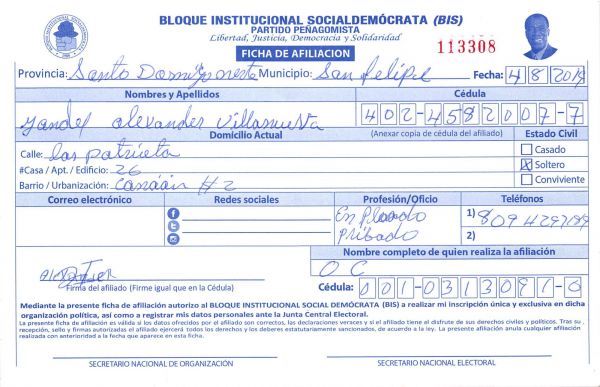 BLOQUE INSTITUCIONAL SOCIALDEMÓCRATA (BIS)
PARTIDO PEÑAGOMISTA
Libertad, Justicia, Democracia y Solidaridad
FICHA DE AFILIACION
113308
Provincia: Santo Domingo este Municipio: San felipe Fecha: 4/8/2019
Nombres y Apellidos Cédula
Yandel alexander Villanueva 402-4582007-7
Domicilio Actual (Anexar copia de cédula del afiliado) Estado Civil
Calle: las patrieta Casado
#Casa / Apt. / Edificio: 26 Soltero
Barrio / Urbanización: Canáán # 2 Conviviente
Correo electrónico Redes sociales Profesión/Oficio Teléfonos
EnPleado 1) 809 4297199
Pribado 2)
Nombre completo de quien realiza la afiliación
O C
Firma del afiliado (Firme igual que en la Cédula) Cédula: 001-0313091-0
Mediante la presente ficha de afiliación autorizo al BLOQUE INSTITUCIONAL SOCIAL DEMÓCRATA (BIS) a realizar mi inscripción única y exclusiva en dicha
organización política, así como a registrar mis datos personales ante la Junta Central Electoral.
La presente ficha de afiliación es válida si los datos ofrecidos por el afiliado son correctos, las declaraciones veraces y si el afiliado tiene el disfrute de sus derechos civiles y políticos. Tras su
recepción, sello y firmas autorizadas el afiliado ejercerá todos los derechos y los deberes estatutariamente sancionados, de acuerdo a la ley. La presente anula cualquier afiliación
realizada con anterioridad a la fecha que aparece en esta ficha.
SECRETARIO NACIONAL DE ORGANIZACIÓN SECRETARIO NACIONAL ELECTORAL